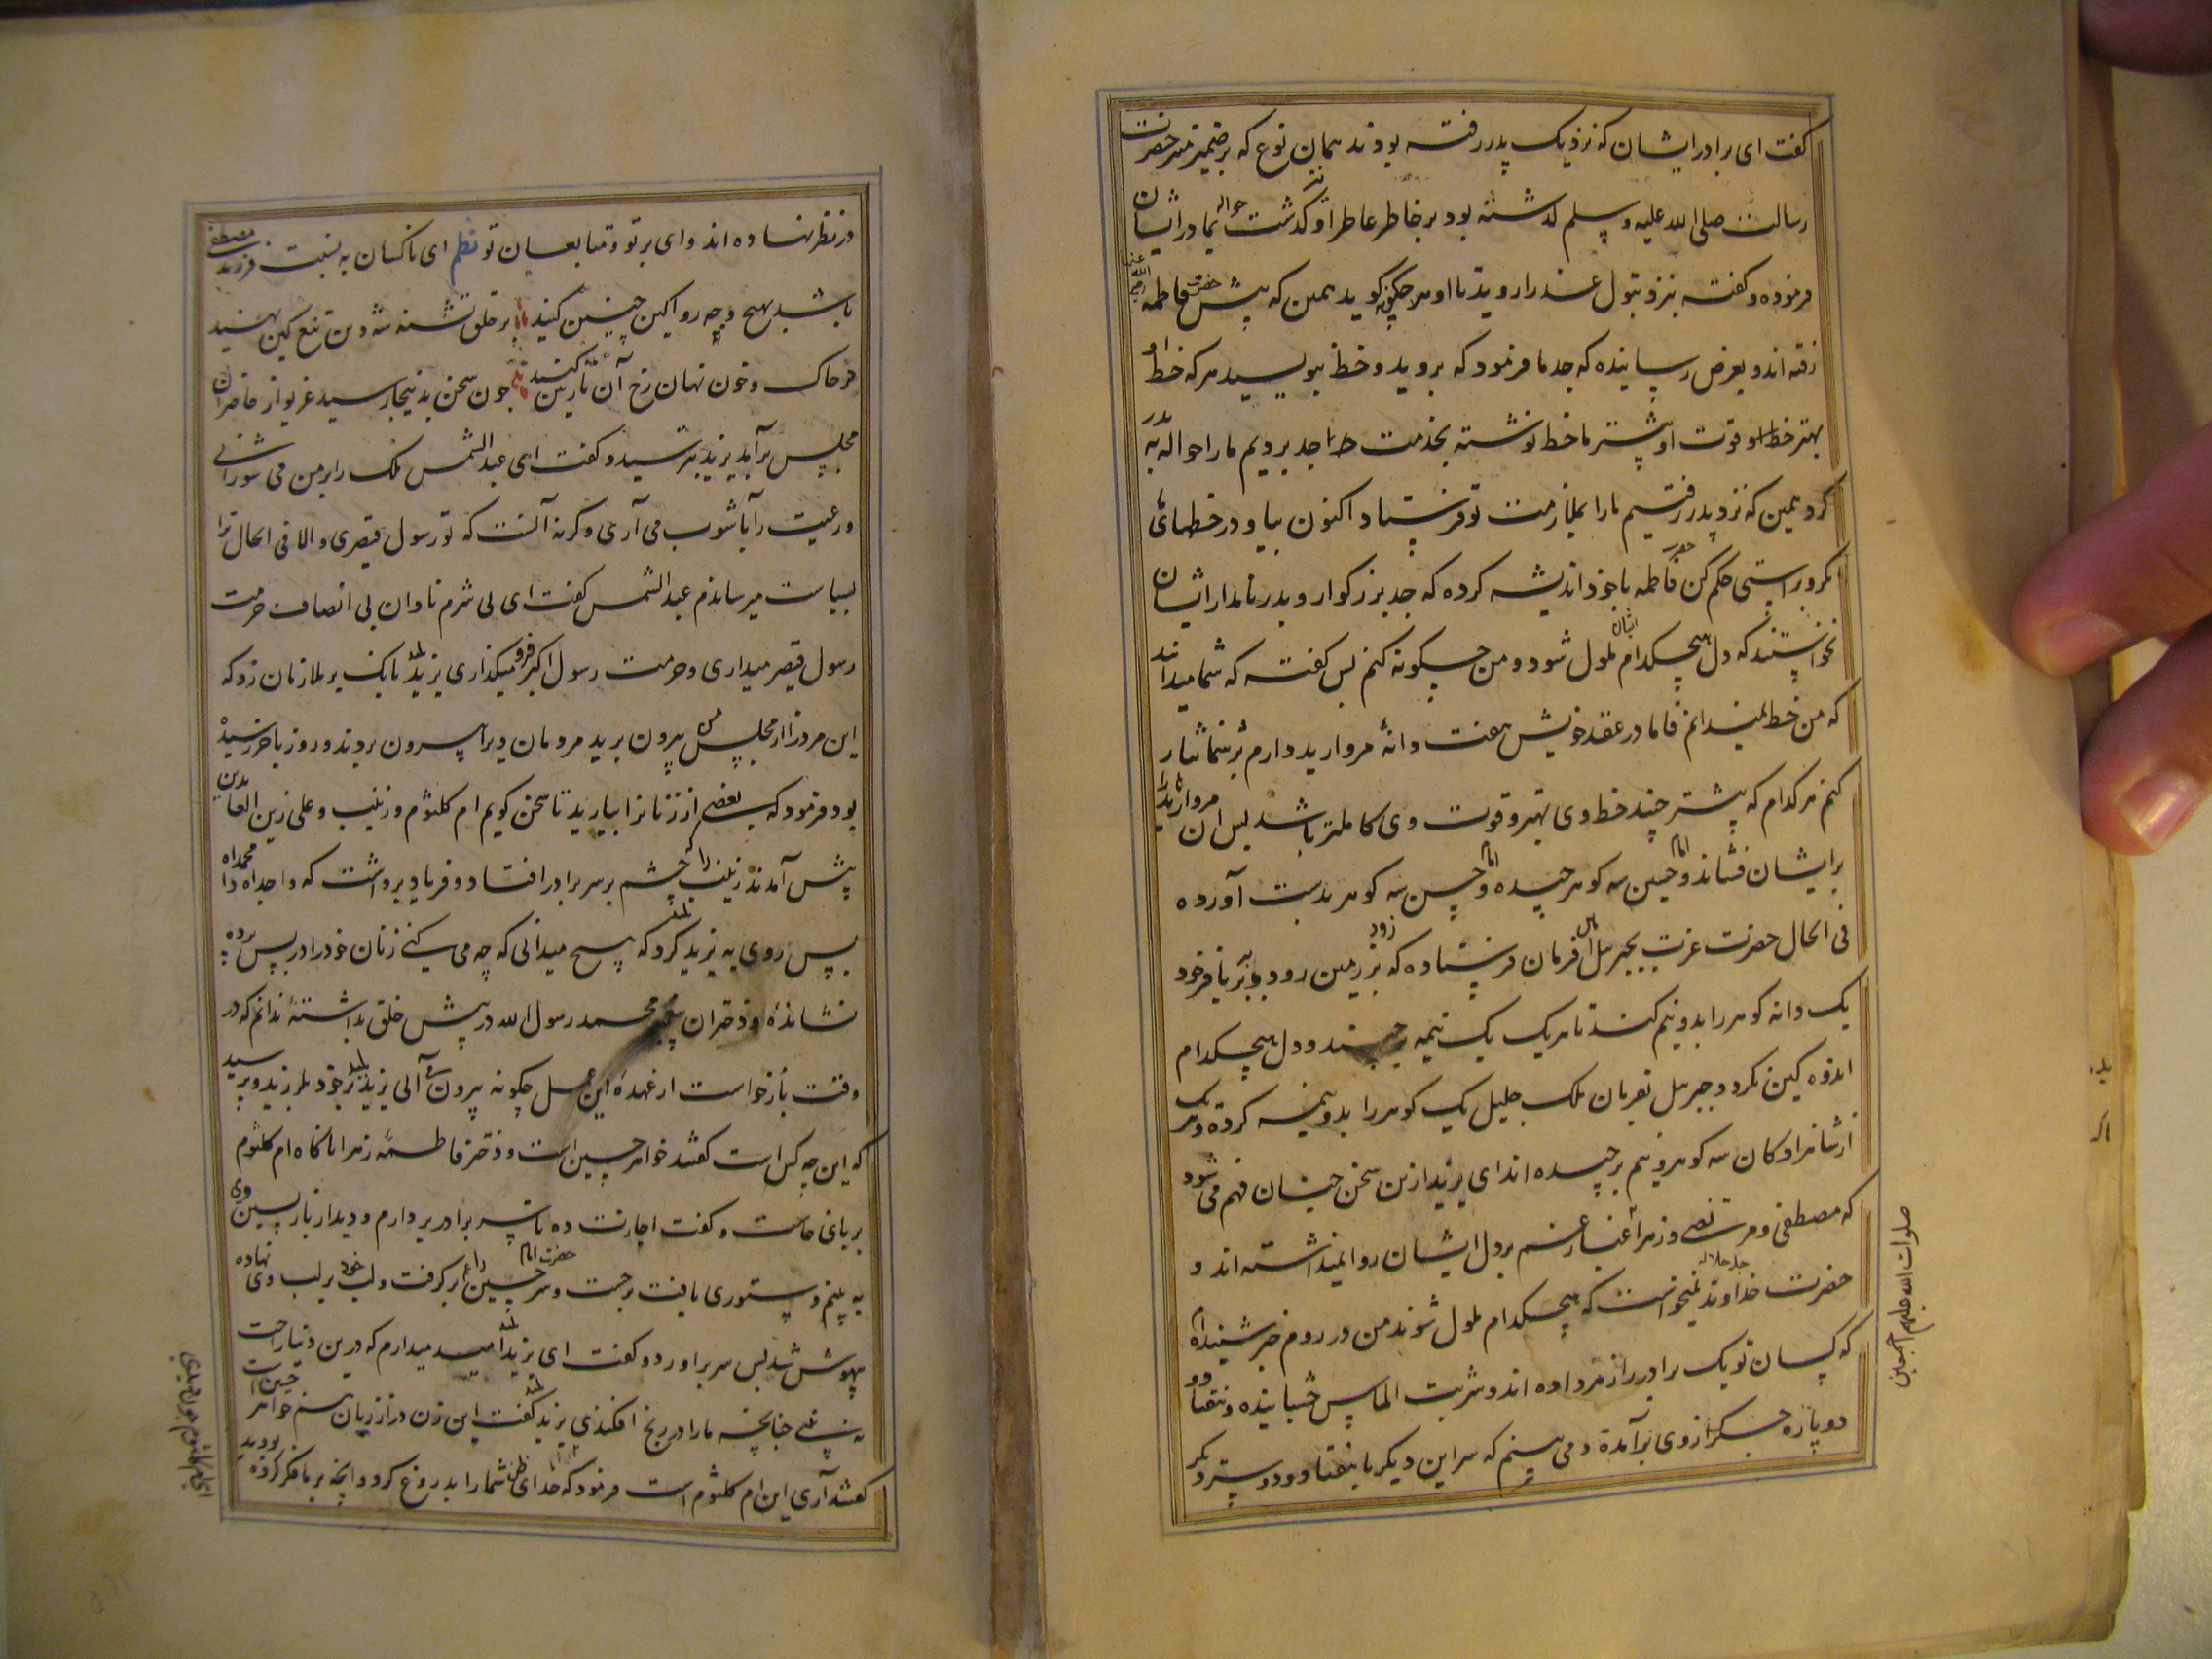 گفت ای برادر ایشان که نزدیک پدر رفته بودند همان نوع که بر ضمیر منیر حضرت
رسالت صلی الله علیه وسلم گذشته بود بر خاطر عاطر او نیز گذشت حواله بمادر ایشان
فرموده و گفته نزد بتول عذرا روید تا او هر چگونه گوید همین که پیش حضرت فاطمه رضی الله عنها
رفته اند و بعرض رسانیده که جد ما فرمود که بروید و خط بنویسید هر که خط او
بهتر قوت او بیشتر ما خط نوشته بخدمت جد بردیم ما را حواله به پدر
کرد همین که نزد پدر رفتیم ما را بملازمت تو فرستاد اکنون بیا و در خطهای
نگر و براستی حکم کن فاطمه با خود اندیشه کرده که جد بزرگوار و پدر نامدار ایشان
نخواستند که دل هیچکدام ایشان ملول شود و من چگونه کنم پس گفته که شما میدانید
که من خط نمیدانم فاما در عقد خویش هفت دانهٔ مروارید دارم بر شما نثار
کنم هر کدام که بیشتر چیند خط وی بهتر و قوت وی کاملتر باشد پس آن مروارید را
بر ایشان فشاند و امام حسین سه گوهر چیده و امام حسن سه گوهر بدست آورده
فی الحال حضرت عزت بجبرئیل فرمان فرستاده که زود بر زمین رود و بپر
یک دانه گوهر را بدو نیم کند تا هر یک یک نیمه بر چینند و دل هیچکدام
اندوه کین نکردد جبرئیل بفرمان ملک جلیل یک گوهر را بدو نیمه کرده و هر یک
از شاهزادکان سه گوهر و نیم بر چیده اند ای یزید ازین سخن چنان فهم می شود
که مصطفی و مرتضی و زهرا غبار غم بر دل ایشان روا نمیداشته اند و
حضرت خداوند جل جلاله نمیخواست که هیچکدام ملول شوند من در روم خبر شنیده ام
که کسان تو یک برادر را زهر داده اند و شربت الماس چشانیده و هفتاد و دو
دو پاره جگر از وی برآمده و می بینم که سر این دیگر با هفتاد و دو سر دیگر
صلوات الله علیهم اجمعین
در نظر نهاده اند وای بر تو و متابعان تو نظم ای ناکسان به نسبت فرزند مصطفی
باشد بهیچ وجه روا کین چنین کنید بر حلق تشنه شه دین تیغ کین نهید
در خاک و خون نهان رخ آن نازنین کنید چون سخن بدینجا رسید غریو از حاضران
مجلس برآمد یزید بترسید و گفت ای عبد الشمس ملک را بر من می شورانی
و رعیت را بآشوب می آری و گر نه آنست که تو رسول قیصری والا فی الحال ترا
بسیاست میرساندم عبد الشمس گفت ای بی شرم نادان بی انصاف حرمت
رسول قیصر میداری و حرمت رسول اکبر فرو میگذاری یزید بانگ بر ملازمان زد که
این مرد را از مجلس من بیرون برید مردمان ویرا بیرون بردند و روز بآخر رسیده
بود فرمود که بعضی از زنانرا بیارید تا سخن گویم ام کلثوم و زینب و علی زین العابدین
پیش آمدند زینب را که چشم بر سر برادر افتاد و فریاد برداشت که وا جداه وا محمداه
پس روی به یزید کرد که هیچ میدانی که چه می کنی زنان خود را در پس پرده
نشانده و دختران محمد رسول الله در پیش خلق بداشته ندانم که در
وقت بازخواست از عهده این عمل چگونه بیرون آئی یزید بر خود بلرزید و پرسید
که این چه کس است گفتند خواهر حسین است و دختر فاطمه زهرا ناگاه ام کلثوم
بر پای خاست و گفت اجازت ده تا سر برادر بردارم و دیدار بازپسین وی
به بینم دستوری یافت برجست و سر حضرت امام حسین را برگرفت و لب خود بر لب وی نهاده
بیهوش شد پس سر برآورد و گفت ای یزید امید میدارم که درین دنیا راحت
نه بینی چنانچه ما را در رنج افکندی یزید گفت این زن دراز زبان هم خواهر حسین است
گفتند آری این ام کلثوم است فرمود که خدای ظن شما را بدروغ کرد و آنچه بر ما فکر کرده بودید